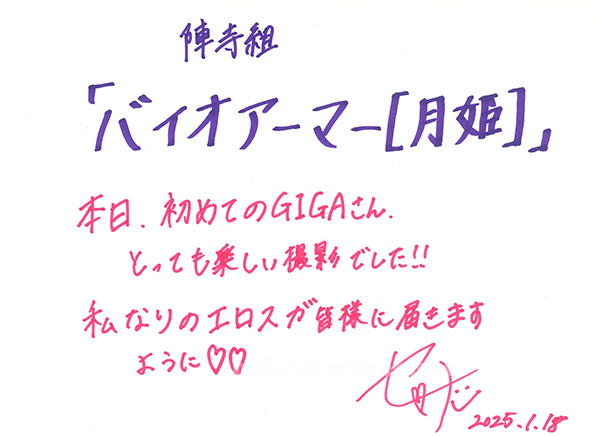 陣寺組
「バイオアーマー[月姫]」
本日、初めてのGIGAさん、
とっても楽しい撮影でした!!
私なりのエロスが皆様に届きます
ように♡♡
2025.1.18